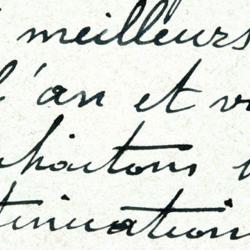 meilleurs
l'an et v
uhaitons
tinuation